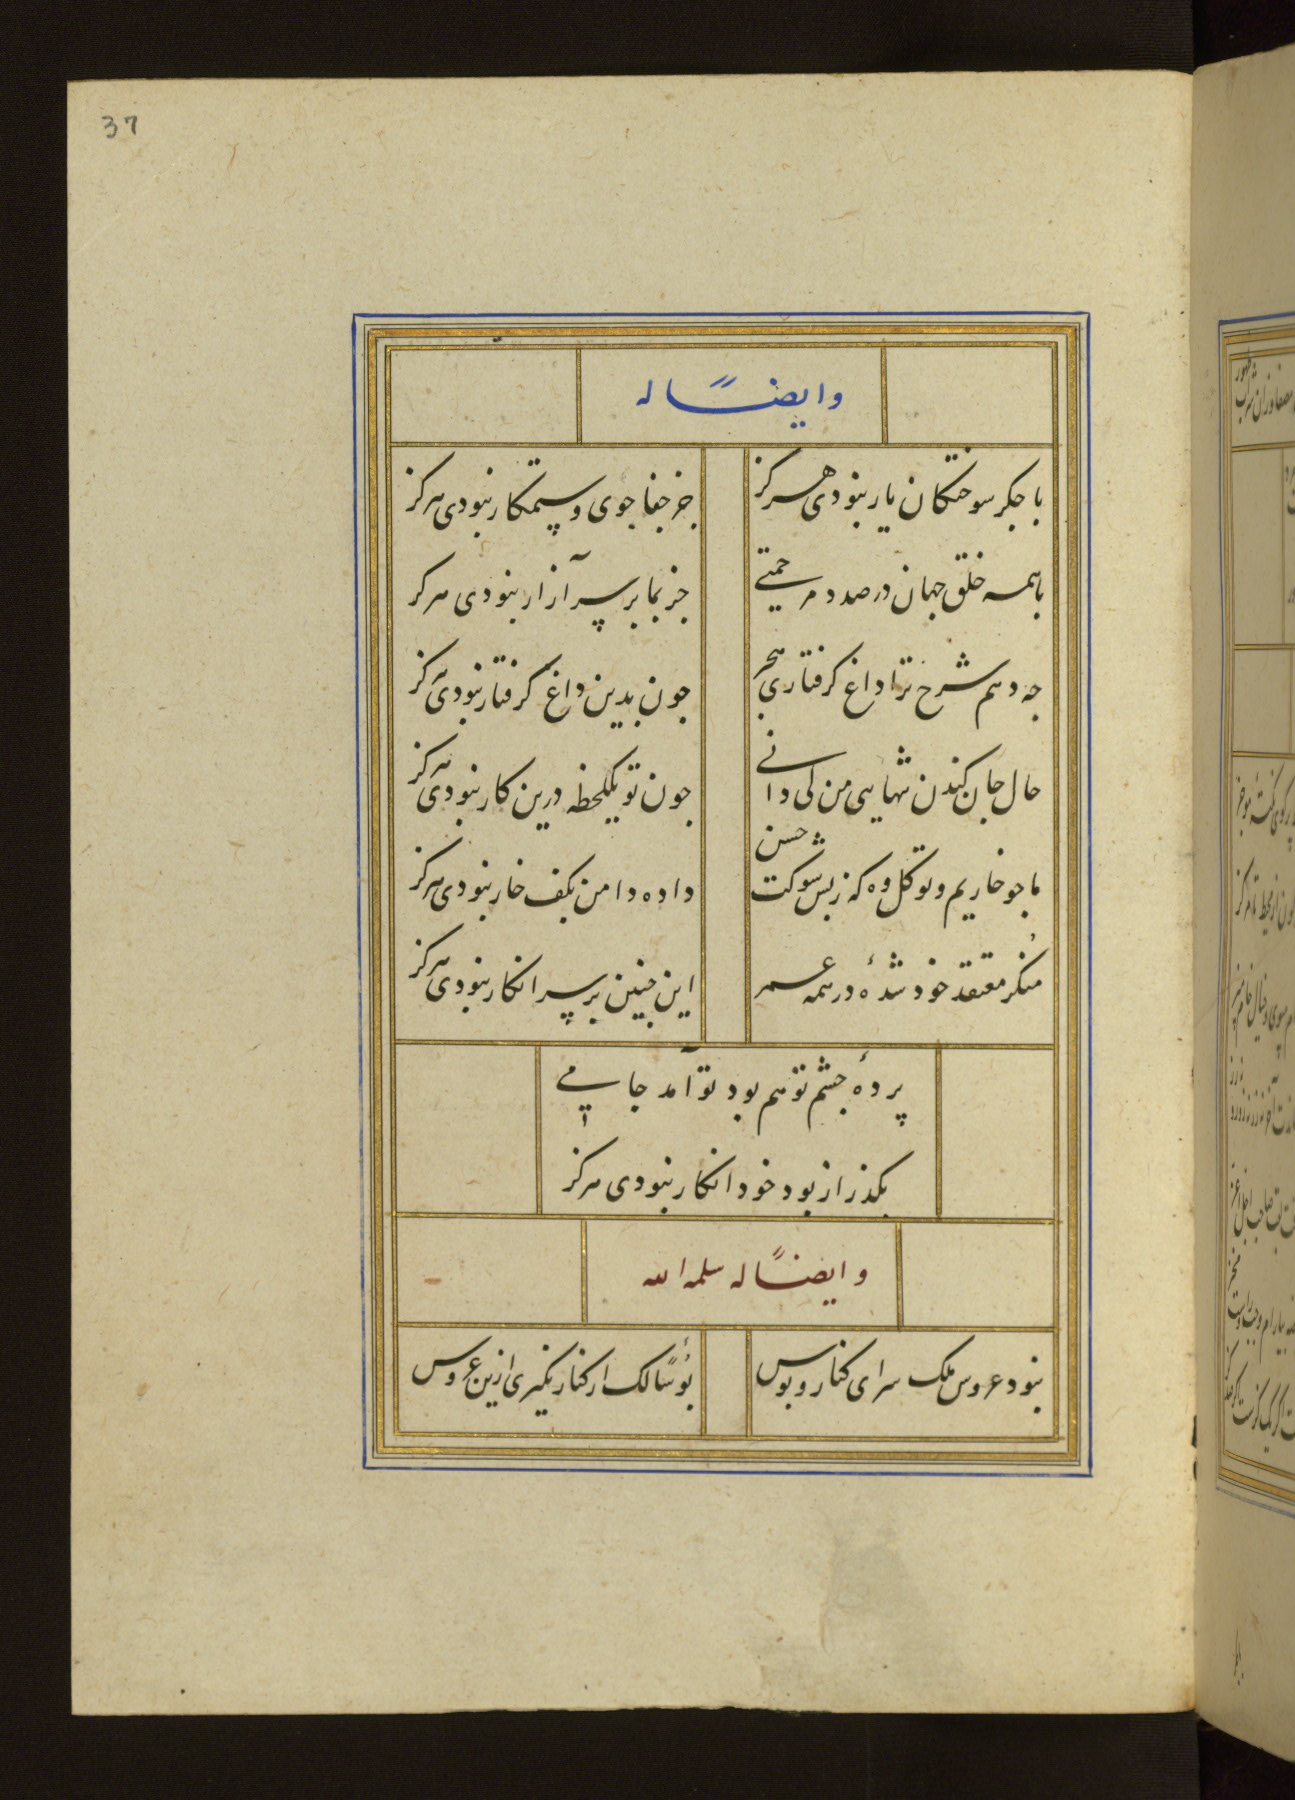 37
وایضاً له
با جکر سوختکان یار نبودی هرکز
جز جفا جوی و ستمکار نبودی هرکز
با همه خلق جهان در صدد مرحمتی
جز بما بر سر آزار نبودی هرکز
جه دهم شرح ترا داغ کرفتاری هجر
جون بدین داغ کرفتار نبودی هرکز
حال جان کندن تنهایی من کی دانی
جون تو یکلحظه درین کار نبودی هرکز
ما جو خاریم و تو کل وه که زبس شوکت حسن
داده دامن بکف خار نبودی هرکز
منکر معتقد خود شدهٔ در همه عمر
این جنین بر سر انکار نبودی هرکز
پردهٔ جشم تو هم بود تو آمد جامی
بکذر از بود خود انکار نبودی هرکز
وایضاً له سلمه الله
نبود عروس ملک سرای کنار و بوس
بؤسًا لک ار کنار نکیری ازین عروس